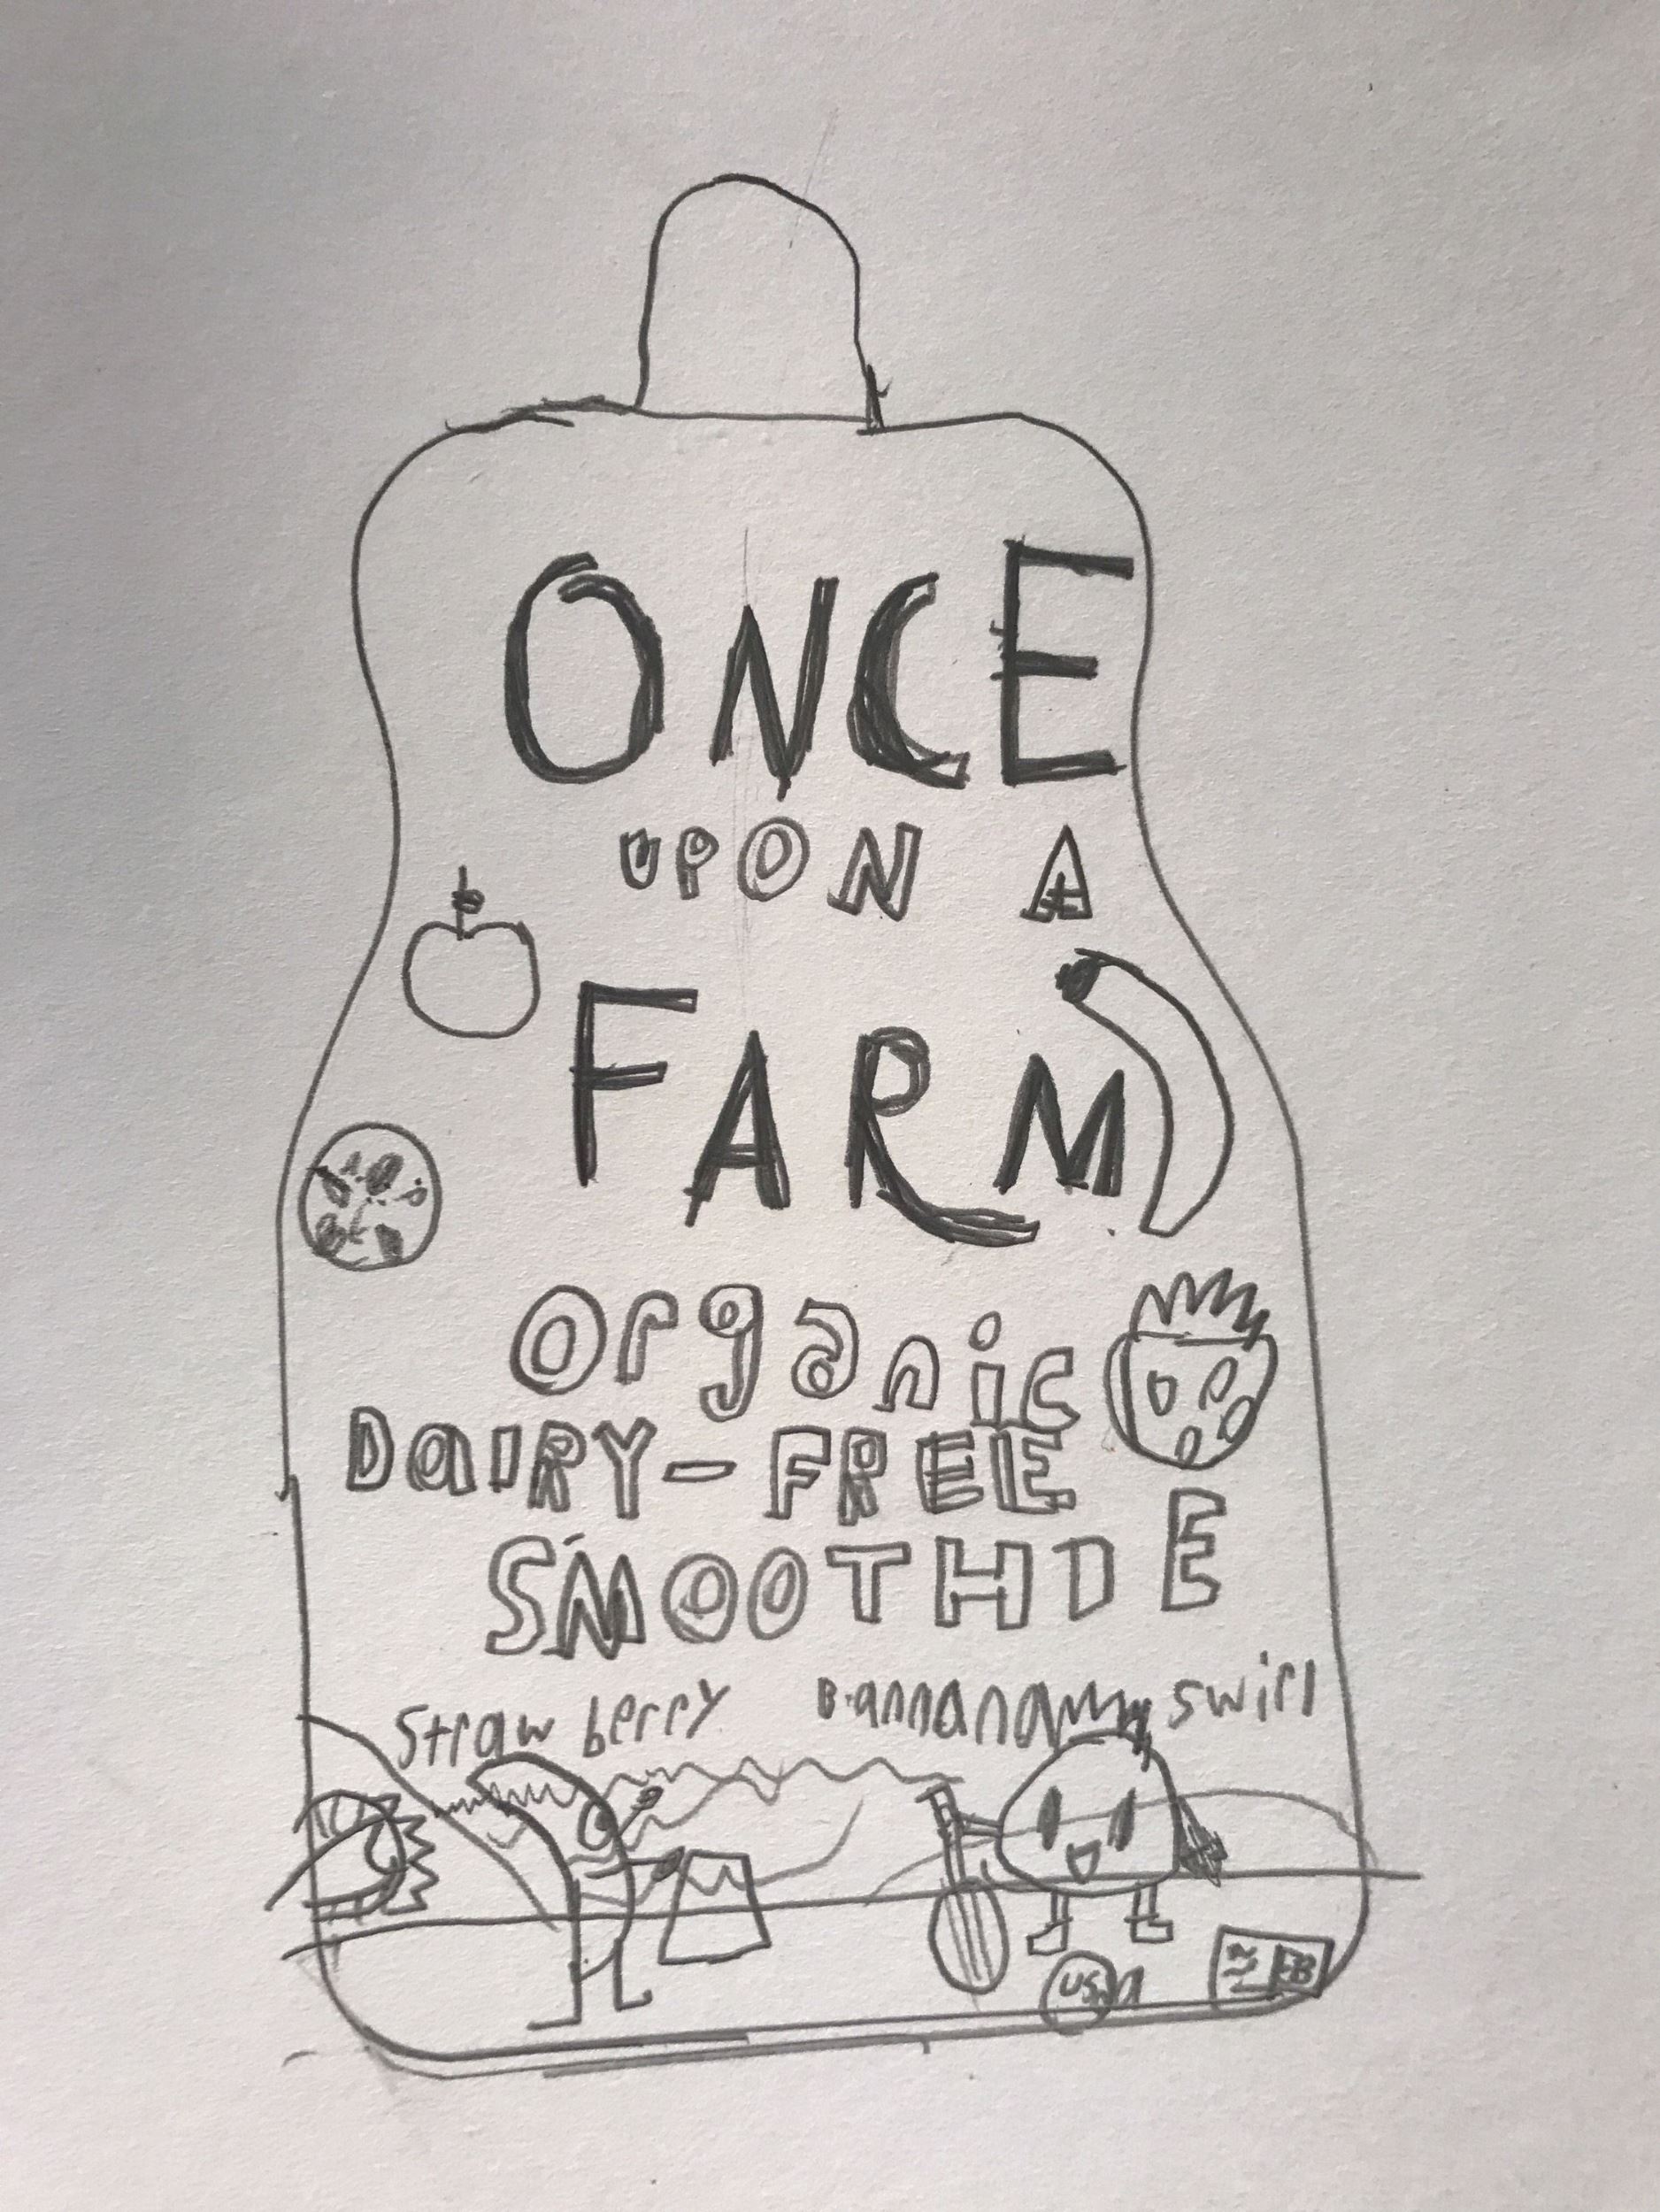 ONCE
UPON A
FARM
organic
DaIRY-FREE
SMOOTHIE
Strawberry Bannana swirl
USDA